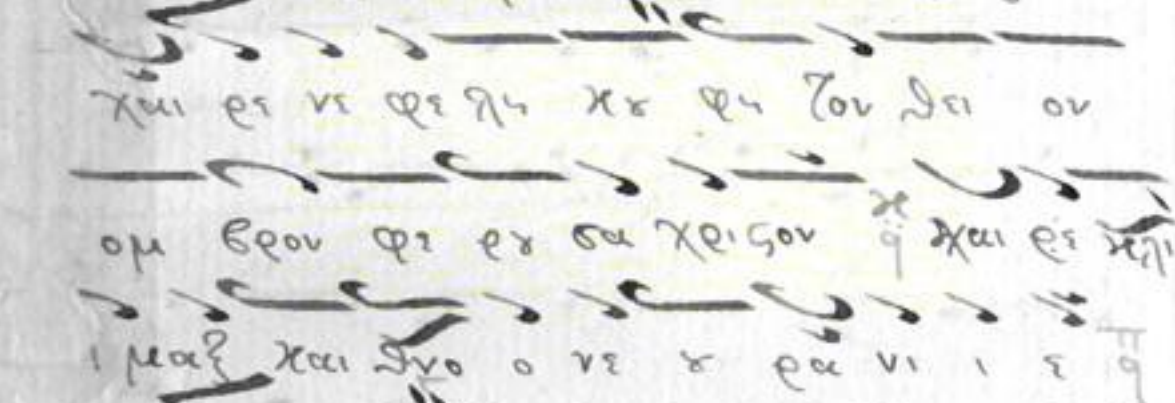 χαι ρε νε φε λη κȣ φη τον θει ον
ομ βρον φε ρȣ σα χριϛον χαι ρε κλι
ι μαξ και θρο ο νε ȣ ρα νι ι ε